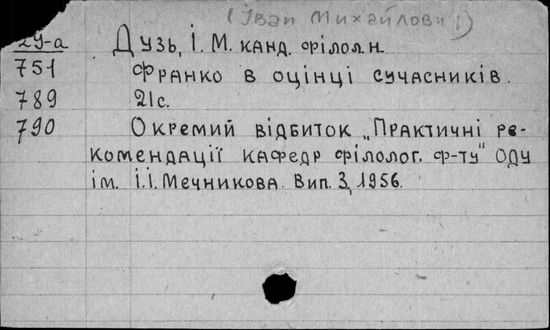 (Іван Михайлович)
29-а Дузь, І. М. канд. філол. н.
751 Франко в оцінці сучасників.
789 21с.
790 Окремий відбиток „Практичні ре-
комендації кафедр філолог. ф-ту" ОДУ
ім. І.І. Мечникова. Вип. 3, 1956.